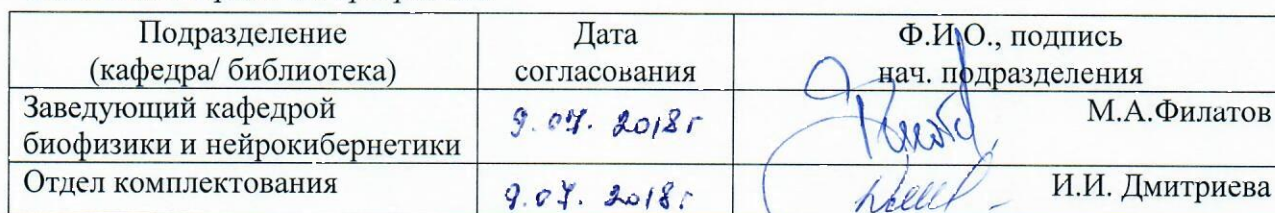 Подразделение
(кафедра/ библиотека)
Дата
согласования
Ф.И.О., подпись
нач. подразделения
Заведующий кафедрой
биофизики и нейрокибернетики
9.07. 2018г
М.А.Филатов
Отдел комплектования
9.07. 2018г
И.И. Дмитриева